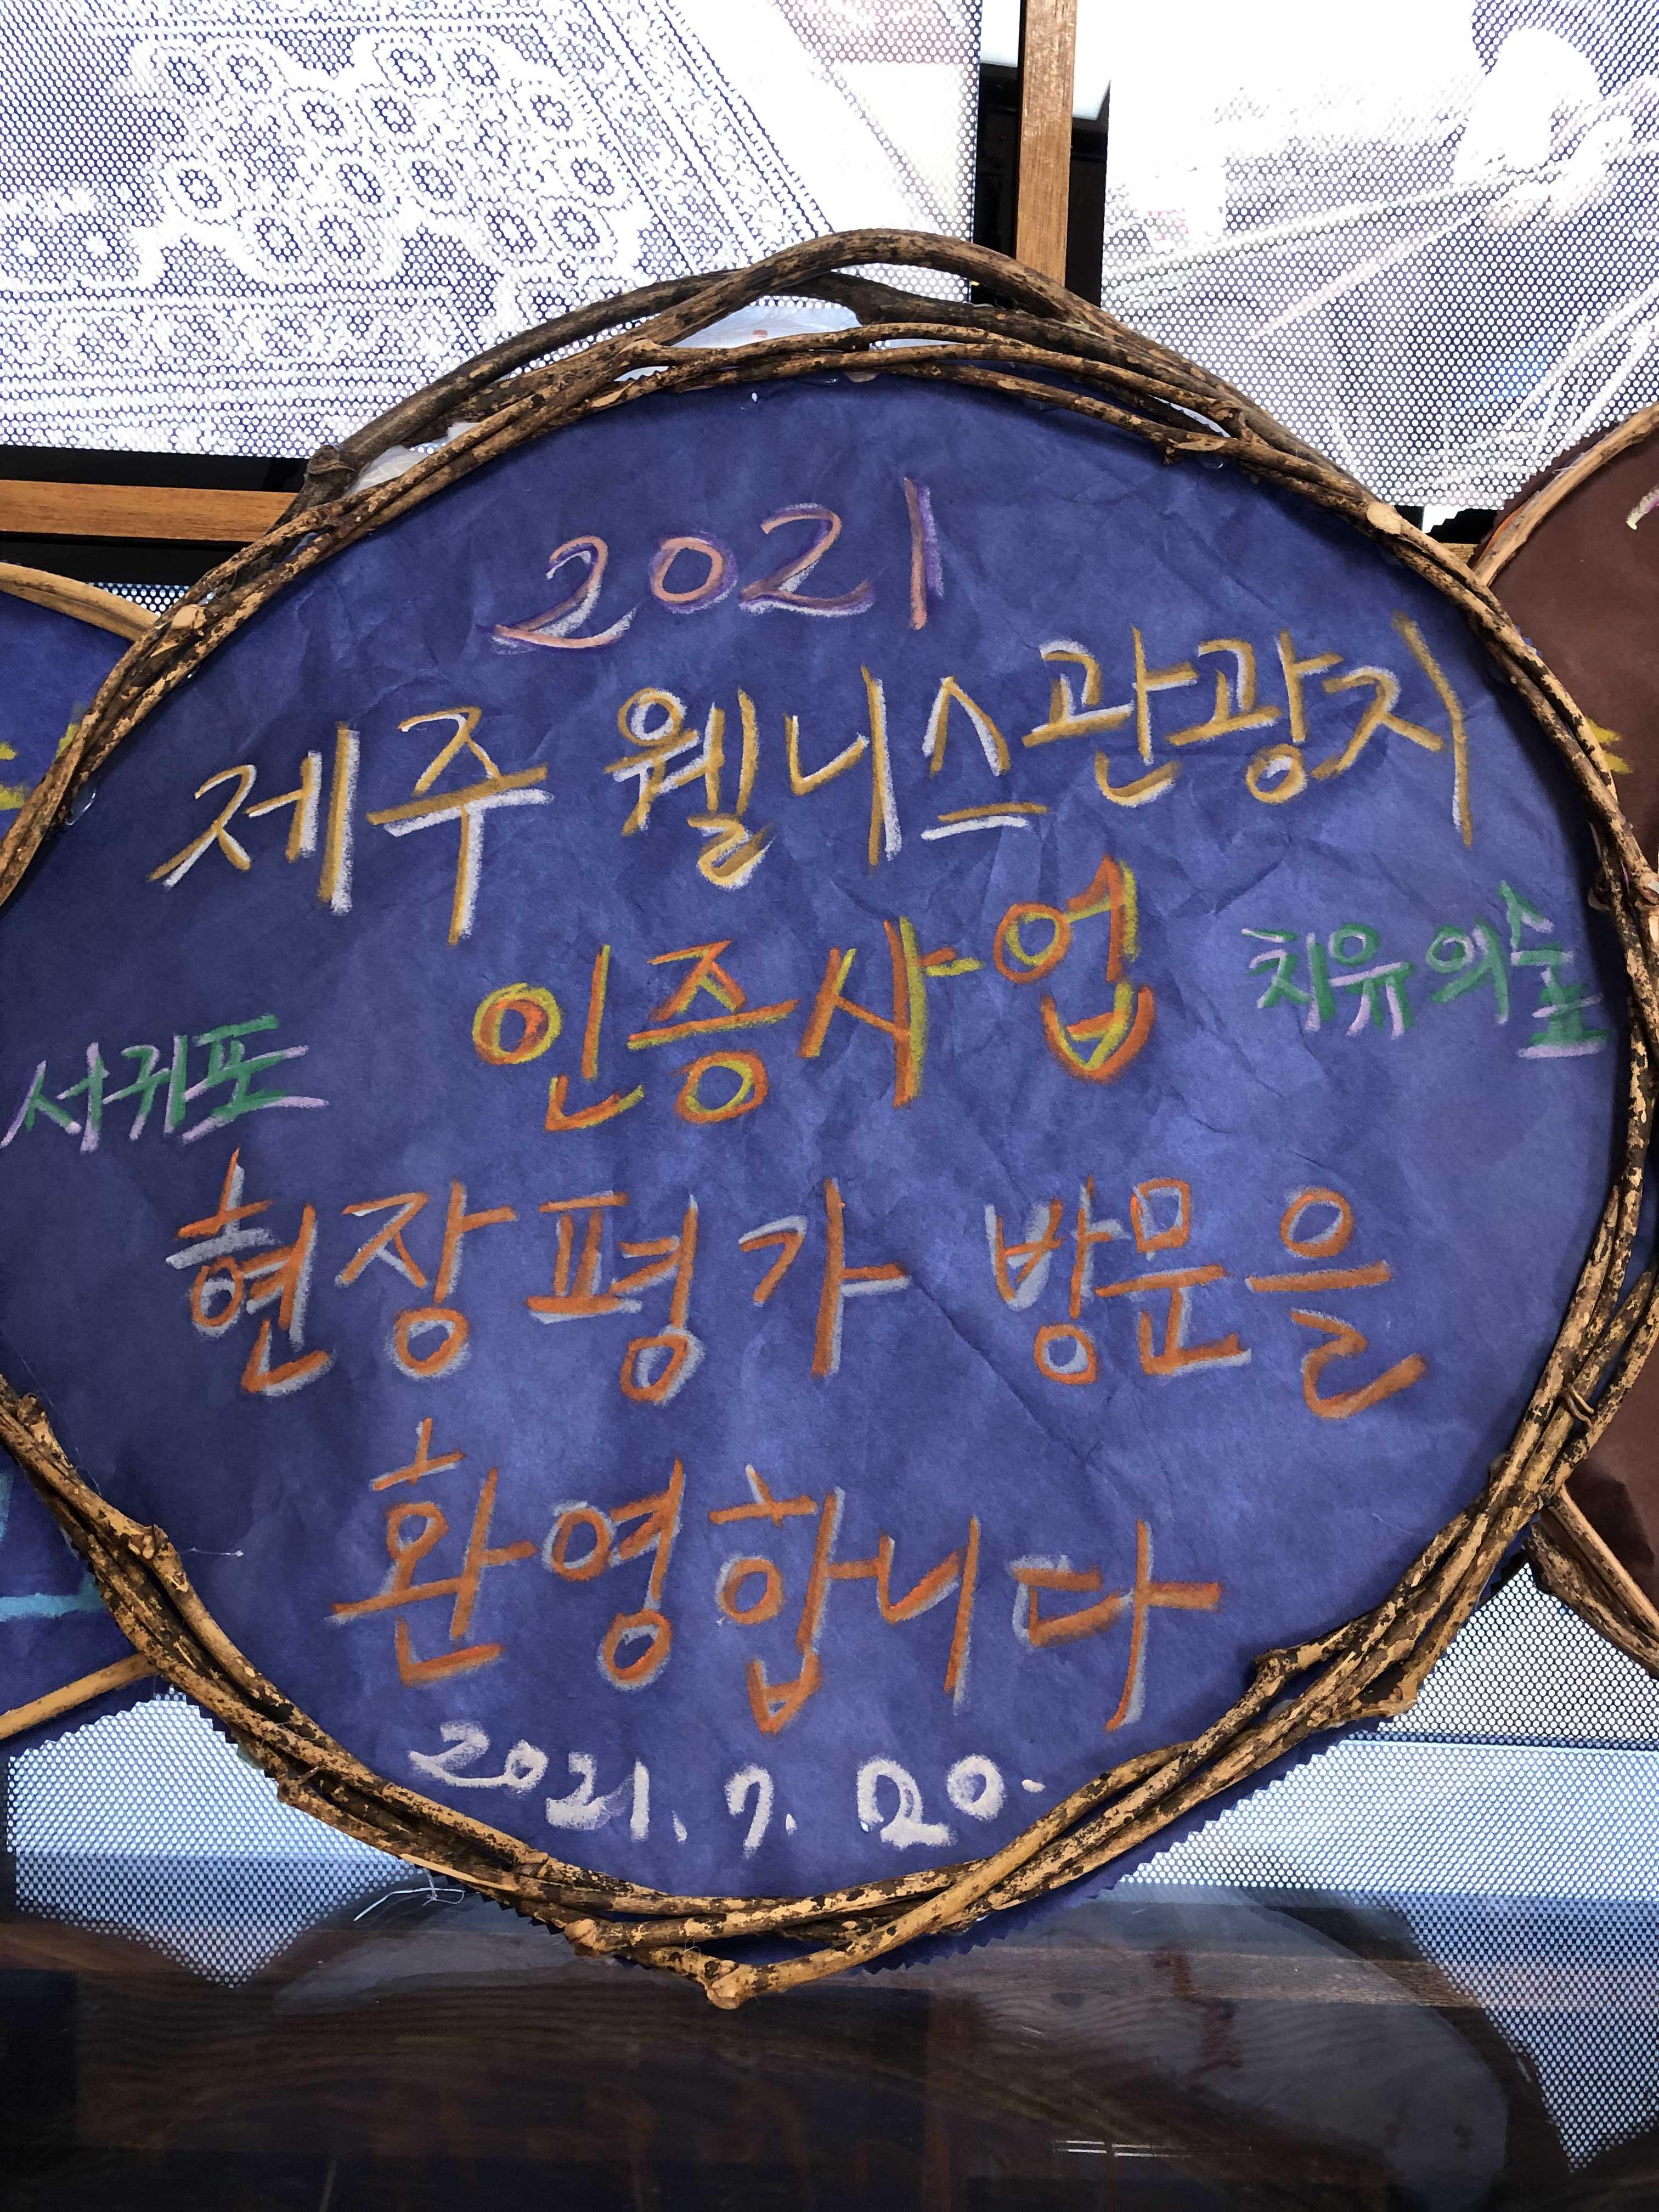 2021
제주 웰니스관광지
인증사업
서귀포 치유의숲
현장평가 방문을
환영합니다
2021. 7. 20.